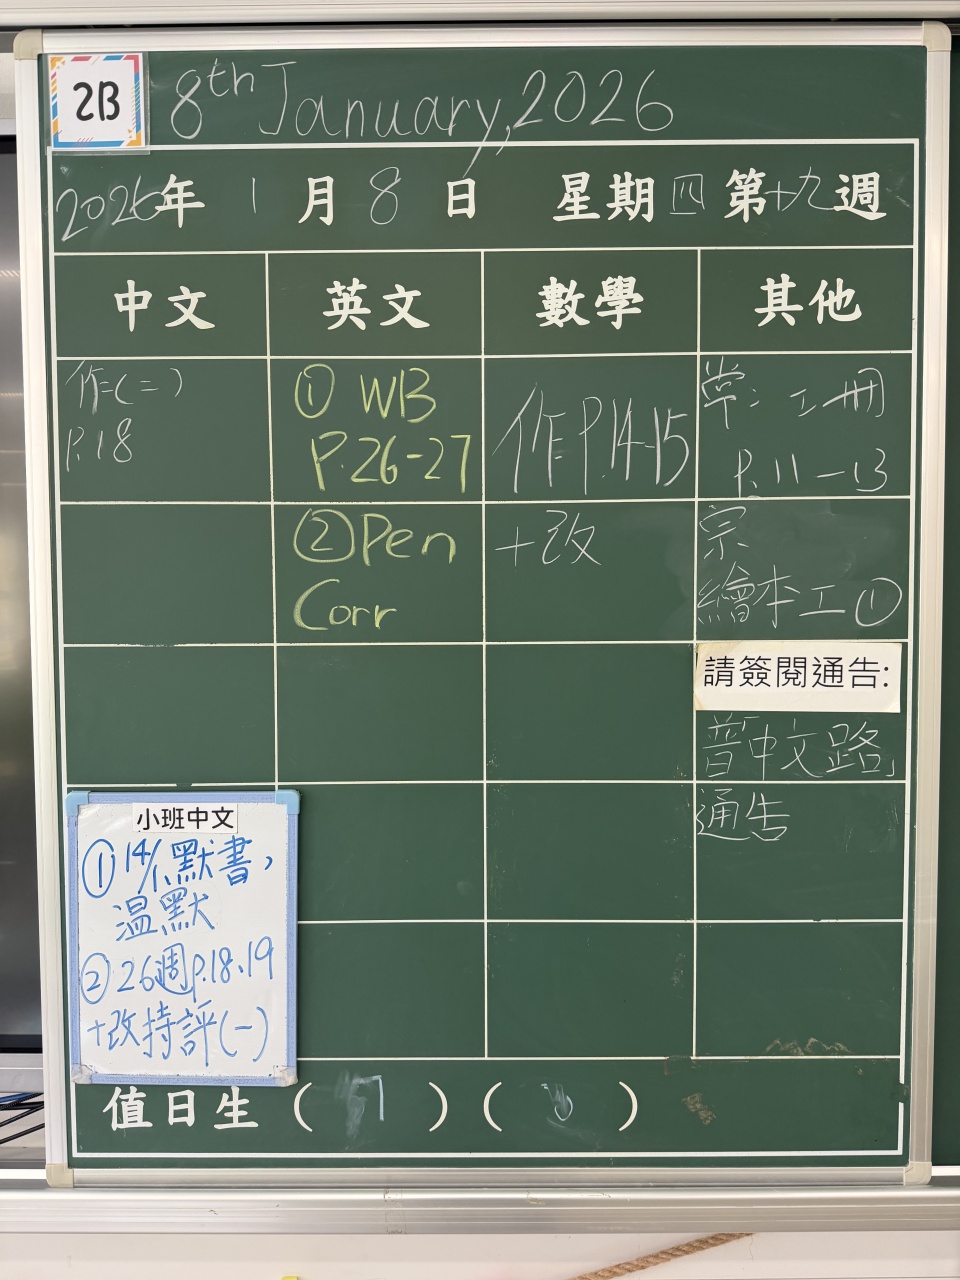 2B
8th January, 2026
2026年 1月 8日 星期四 第十九週
中文 英文 數學 其他
作(二)
P.18
① WB
P.26-27
② Pen
Corr
作 P.14-15
+改
常: 工冊
P.11-13
宗
繪本工①
請簽閱通告:
普「中文路」
通告
小班中文
① 14/1 默書,
溫默
② 26週 p.18、19
+改持評(一)
值日生 ( ) ( )